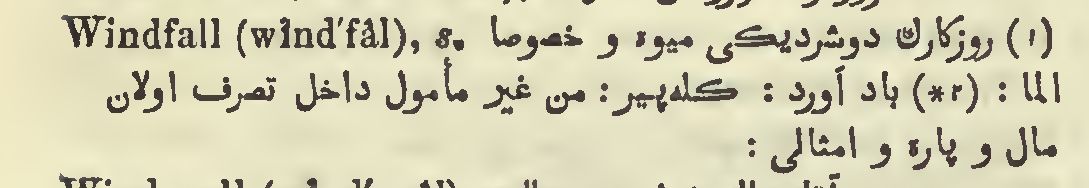 Windfall (wînd′fâl), s. (۱) روزكارڭ دوشرديكى ميوه و خصوصا
الما : (*۲) باد آورد : كله‌پير : من غير مأمول داخل تصرف اولان
مال و پاره و امثالى :